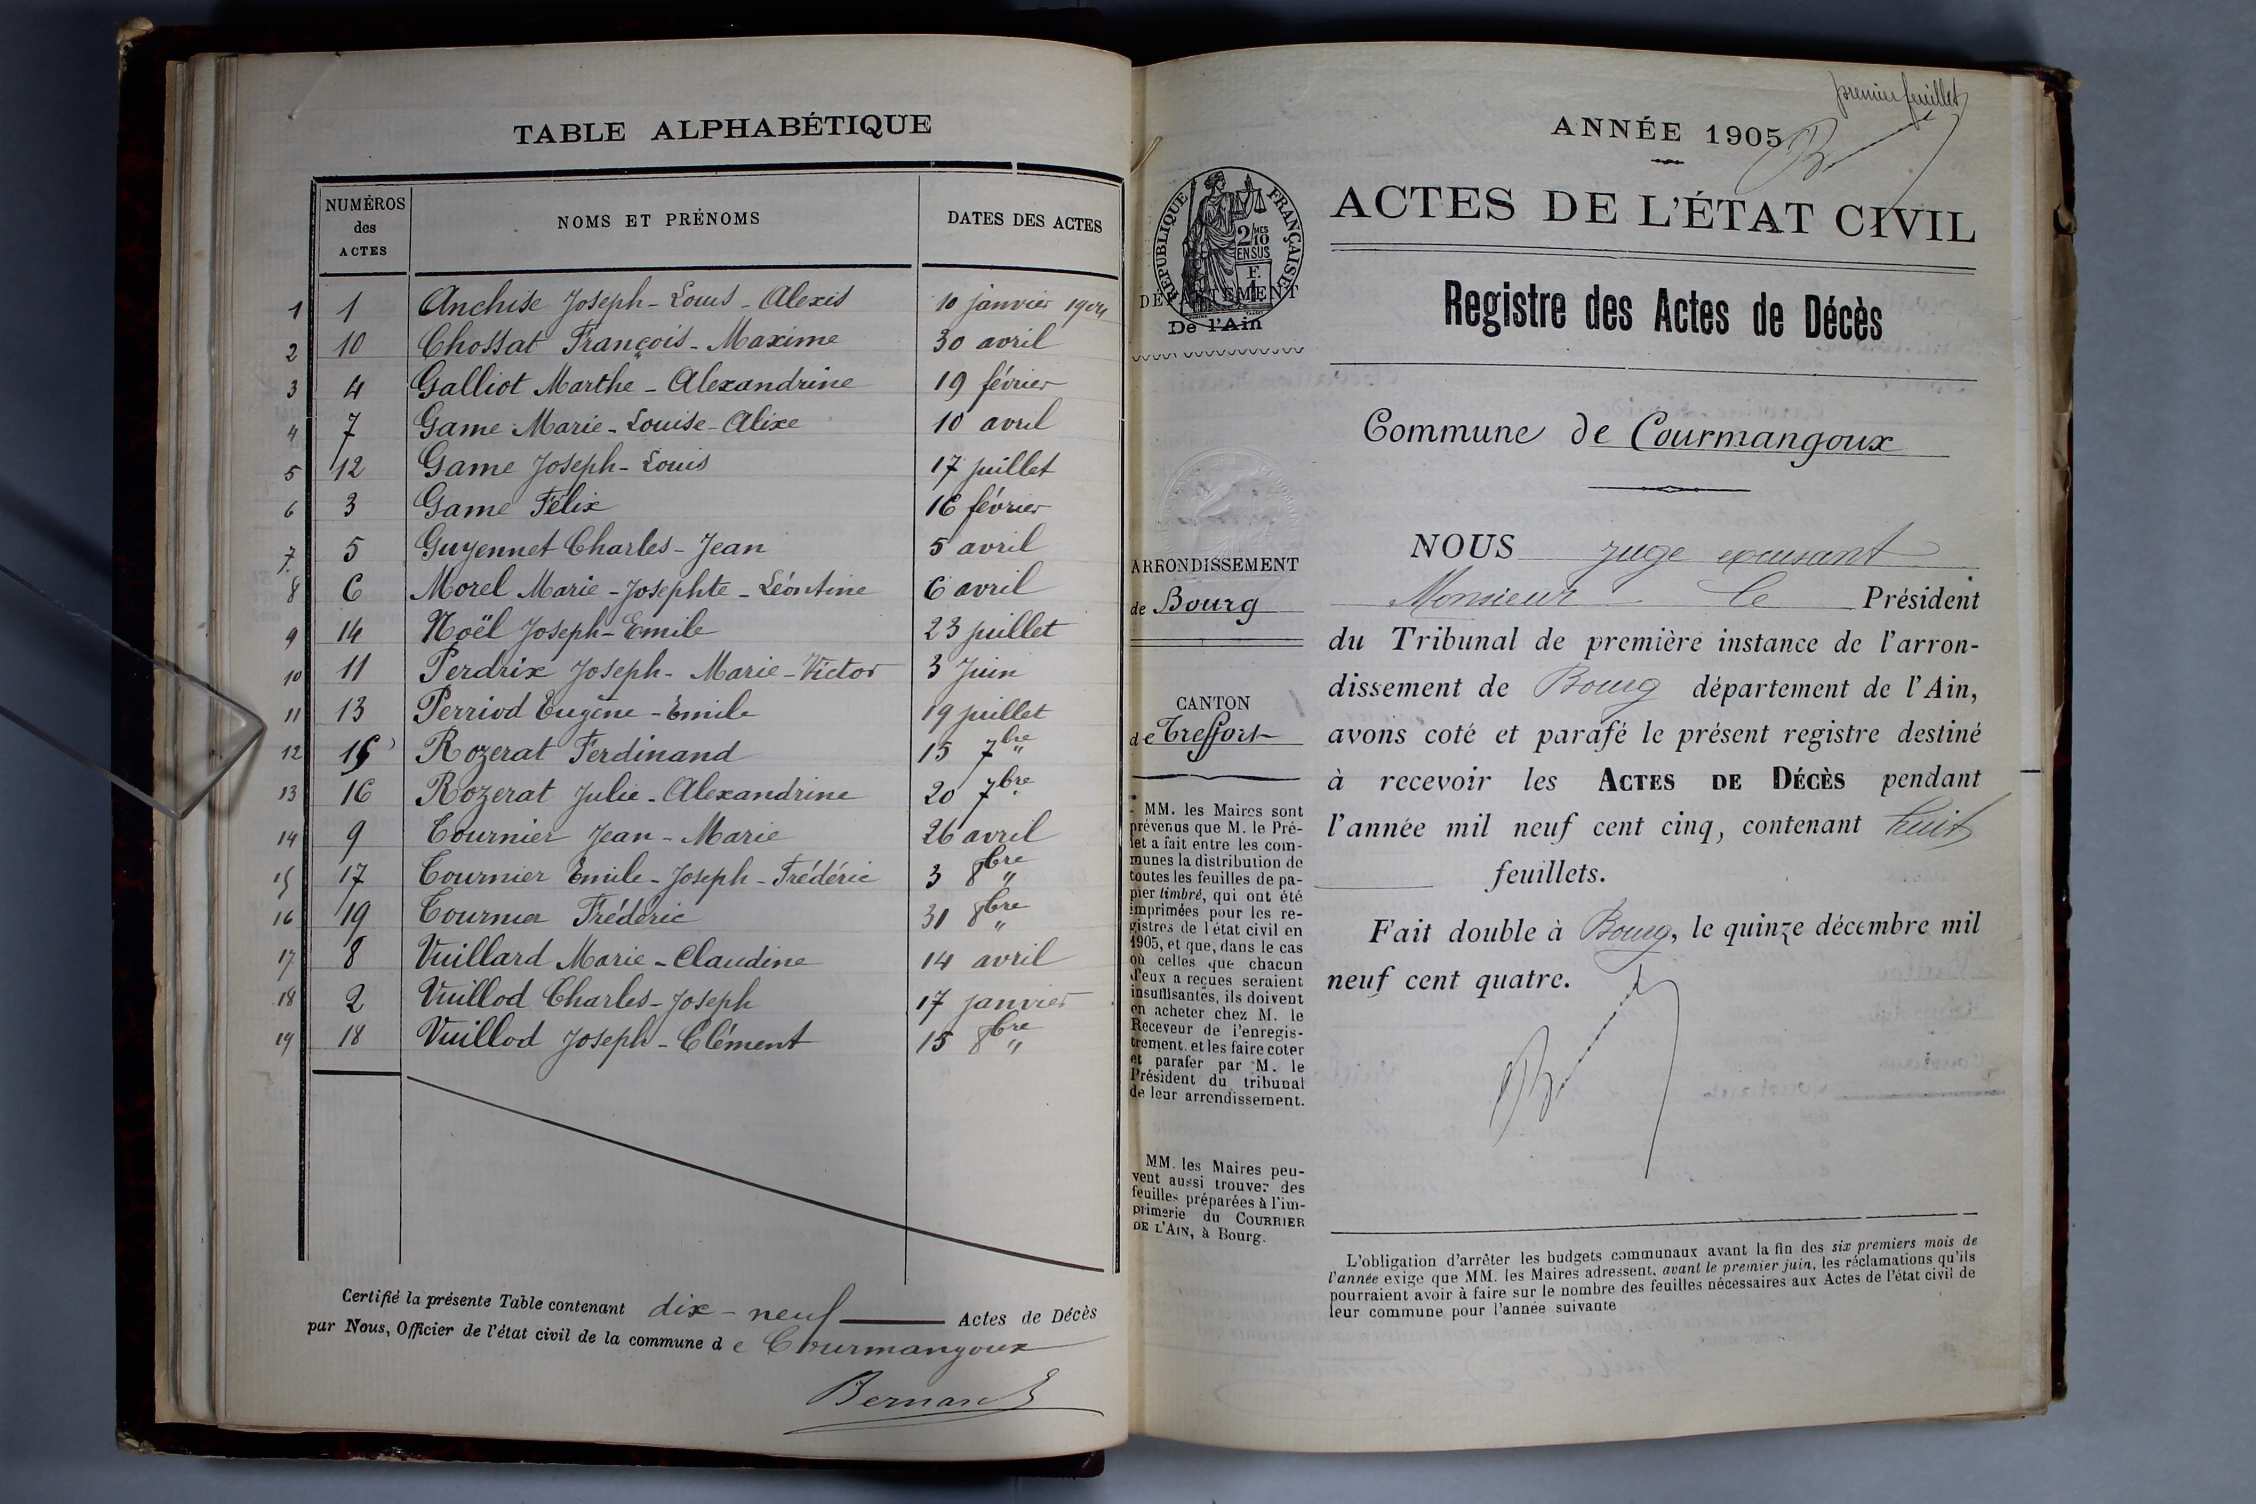 TABLE ALPHABÉTIQUE
NUMÉROS des ACTES | NOMS ET PRÉNOMS | DATES DES ACTES
1 1 Anchise Joseph-Louis-Alexis 10 janvier 1904
2 10 Chossat François-Maxime 30 avril
3 4 Galliot Marthe-Alexandrine 19 février
4 7 Game Marie-Louise-Alixe 10 avril
5 12 Game Joseph-Louis 17 juillet
6 3 Game Félix 16 février
7 5 Guyennet Charles-Jean 5 avril
8 6 Morel Marie-Josephte-Léontine 6 avril
9 14 Noël Joseph-Emile 23 juillet
10 11 Perdrix Joseph-Marie-Victor 3 Juin
11 13 Perriod Eugène-Emile 19 juillet
12 15 Rozerat Ferdinand 15 7bre
13 16 Rozerat Julie-Alexandrine 20 7bre
14 9 Tournier Jean-Marie 26 avril
15 17 Tournier Emile-Joseph-Frédéric 3 8bre
16 19 Tournier Frédéric 31 8bre
17 8 Vuillard Marie-Claudine 14 avril
18 2 Vuillod Charles-Joseph 17 janvier
19 18 Vuillod Joseph-Clément 15 8bre
Certifié la présente Table contenant dix-neuf Actes de Décès
par Nous, Officier de l'état civil de la commune de Courmangoux
Bernard
premier feuillet
ANNÉE 1905
ACTES DE L'ÉTAT CIVIL
RÉPUBLIQUE FRANÇAISE
2/10 MES
EN SUS
DÉPARTEMENT
De l'Ain
Registre des Actes de Décès
Commune de Courmangoux
ARRONDISSEMENT
de Bourg
CANTON
de Treffort
MM. les Maires sont
prévenus que M. le Pré-
fet a fait entre les com-
munes la distribution de
toutes les feuilles de pa-
pier timbré, qui ont été
imprimées pour les re-
gistres de l'état civil en
1905, et que, dans le cas
où celles que chacun
d'eux a reçues seraient
insuffisantes, ils doivent
en acheter chez M. le
Receveur de l'enregis-
trement, et les faire coter
et parafer par M. le
Président du tribunal
de leur arrondissement.
MM. les Maires peu-
vent aussi trouver des
feuilles préparées à l'im-
primerie du COURRIER
DE L'AIN, à Bourg.
NOUS juge excusant
Monsieur le Président
du Tribunal de première instance de l'arron-
dissement de Bourg département de l'Ain,
avons coté et parafé le présent registre destiné
à recevoir les ACTES DE DÉCÈS pendant
l'année mil neuf cent cinq, contenant huit
feuillets.
Fait double à Bourg, le quinze décembre mil
neuf cent quatre.
L'obligation d'arrêter les budgets communaux avant la fin des six premiers mois de
l'année exige que MM. les Maires adressent, avant le premier juin, les réclamations qu'ils
pourraient avoir à faire sur le nombre des feuilles nécessaires aux Actes de l'état civil de
leur commune pour l'année suivante